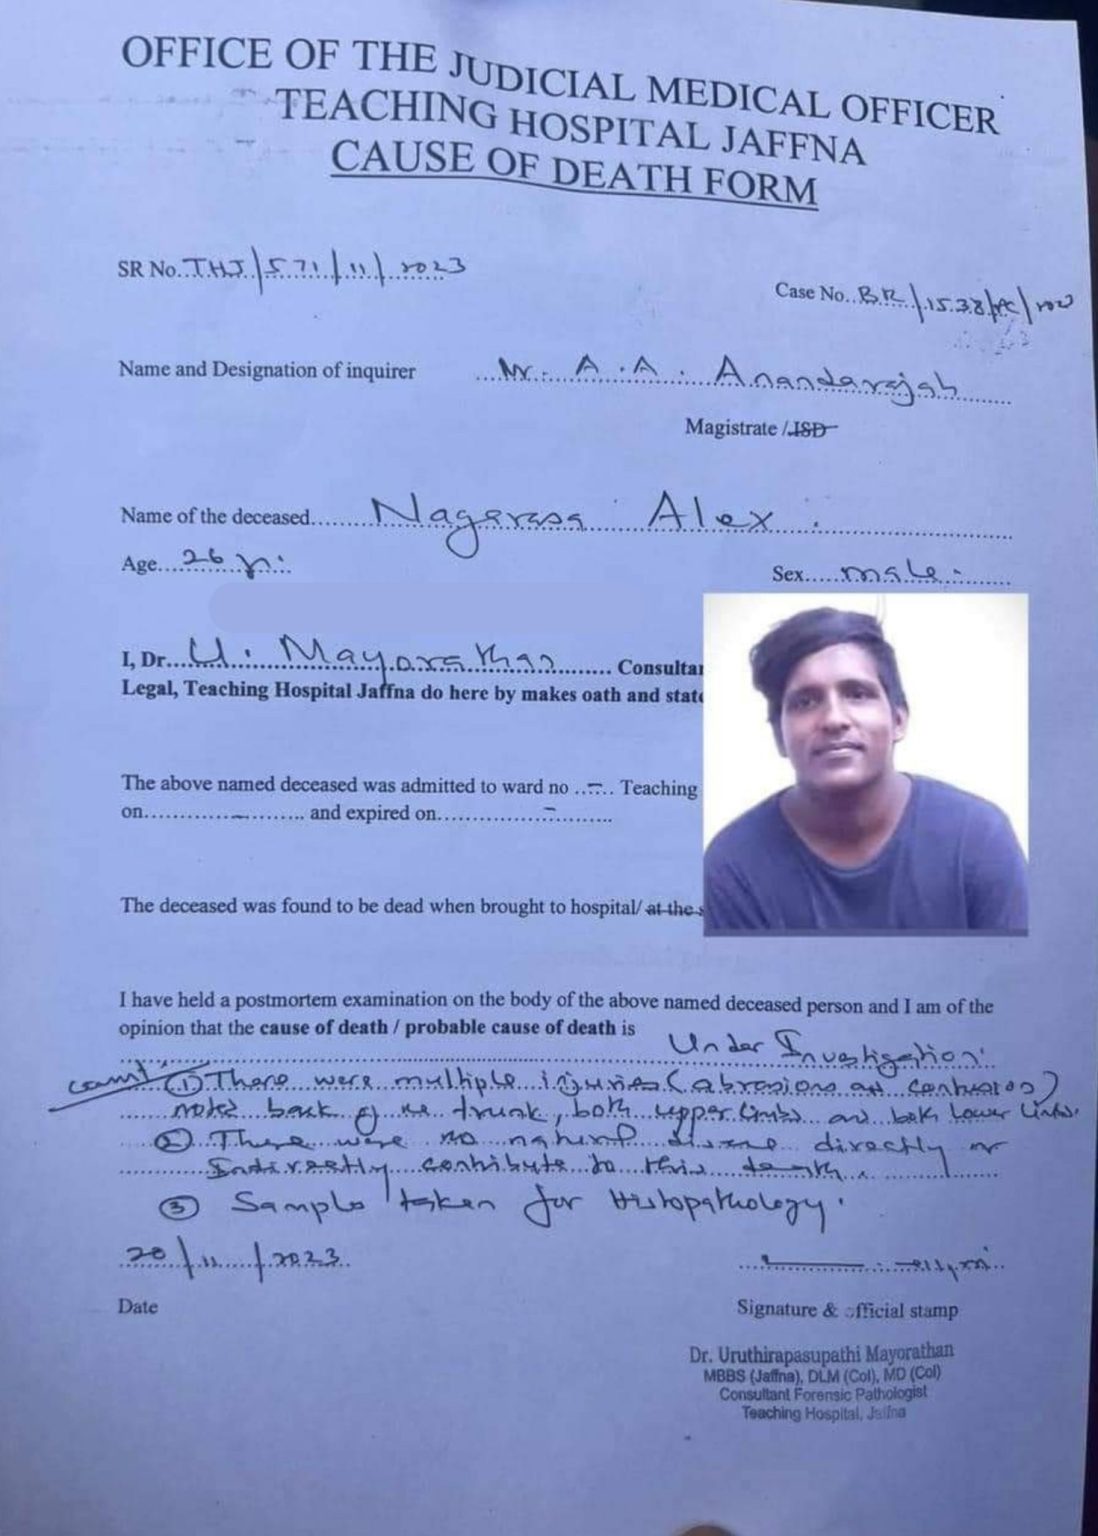 OFFICE OF THE JUDICIAL MEDICAL OFFICER
TEACHING HOSPITAL JAFFNA
CAUSE OF DEATH FORM
SR No. THJ/571/11/2023
Case No. BR/1538/PC/
Name and Designation of inquirer Mr. A. A. Anandarajah
Magistrate / JSD
Name of the deceased Nagarasa Alex.
Age 26 yrs
Sex male.
I, Dr. U. Mayorathan Consulta
Legal, Teaching Hospital Jaffna do here by makes oath and state
The above named deceased was admitted to ward no - Teaching
on - and expired on -
The deceased was found to be dead when brought to hospital/ at the s
I have held a postmortem examination on the body of the above named deceased person and I am of the
opinion that the cause of death / probable cause of death is
Under Investigation.
(1) There were multiple injuries (abrasions and contusions)
noted back of the trunk, both upper limbs and both lower limbs.
(2) There were no natural disease directly or
Indirectly contribute to this death.
(3) Sample taken for Histopathology.
20/11/2023
Date
Signature & official stamp
Dr. Uruthirapasupathi Mayorathan
MBBS (Jaffna), DLM (Col), MD (Col)
Consultant Forensic Pathologist
Teaching Hospital, Jaffna